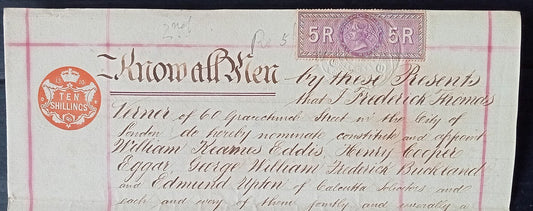 2nd
5 R 5 R
TEN
SHILLINGS
Know all Men by these Presents
that I Frederick Thomas
Verner of 60 Gracechurch Street in the City of
London do hereby nominate constitute and appoint
William Keames Eddis, Henry Cooper
Eggar, George William Frederick Buckland
and Edmund Upton of Calcutta Solicitors and
each and any of them jointly and severally a